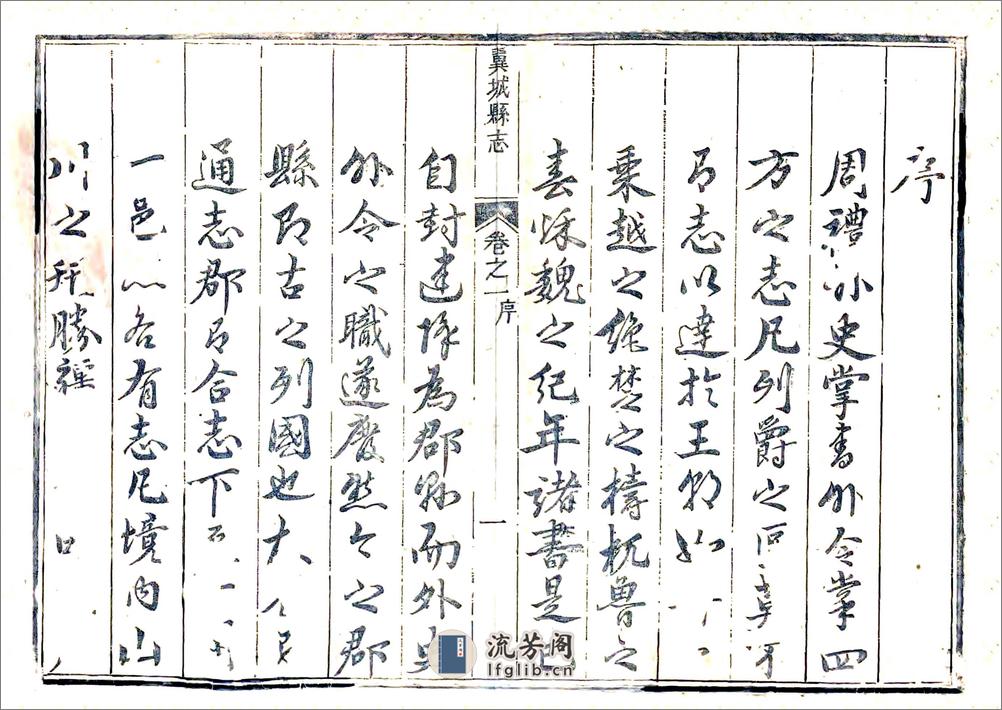 序
周禮小史掌書外令掌四
方之志凡列爵之
有志以達於王朝如
乘越之絶楚之檮杌魯之
春秋魏之紀年諸書是也
翼城縣志
卷之一
序
一
自封建降為郡縣而外史
外令之職遂廢然今之郡
縣即古之列國也大
通志郡有合志下
一邑亦各有志凡境内山
川之形勝
流芳阁
lfglib.cn